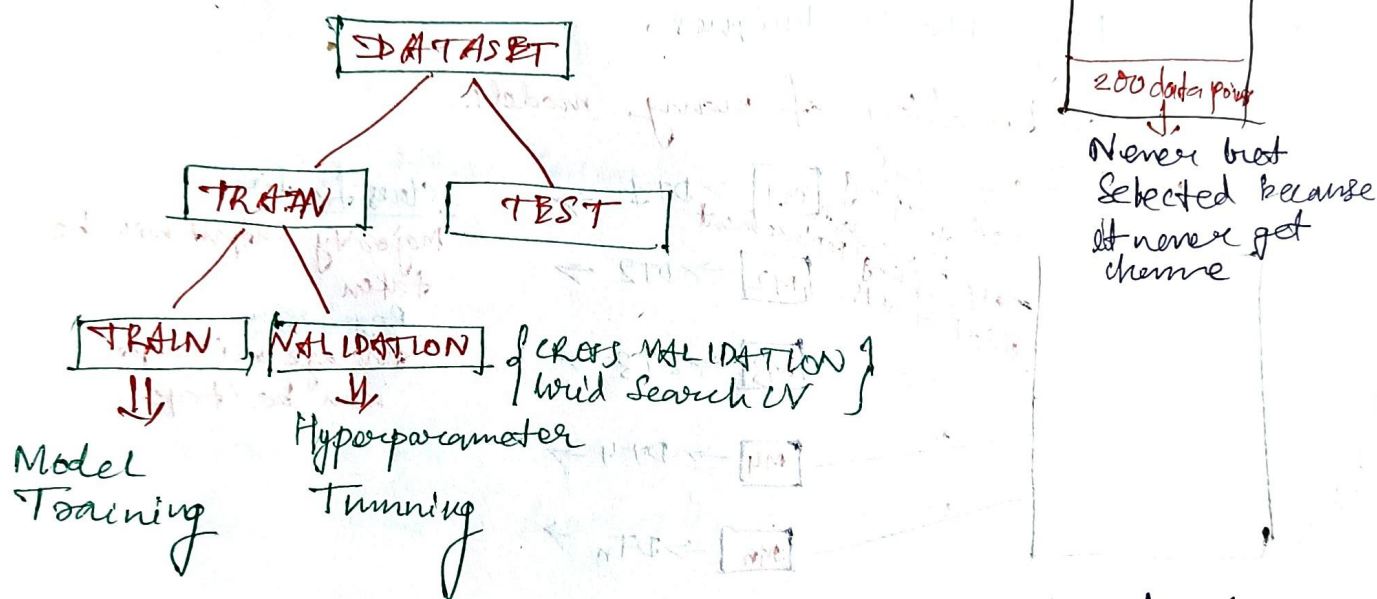 DATASET
TRAIN
TEST
TRAIN , VALIDATION { CROSS VALIDATION
Grid Search CV }
Model
Training
Hyperparameter
Tunning
200 data point
Never
Selected because
it never get